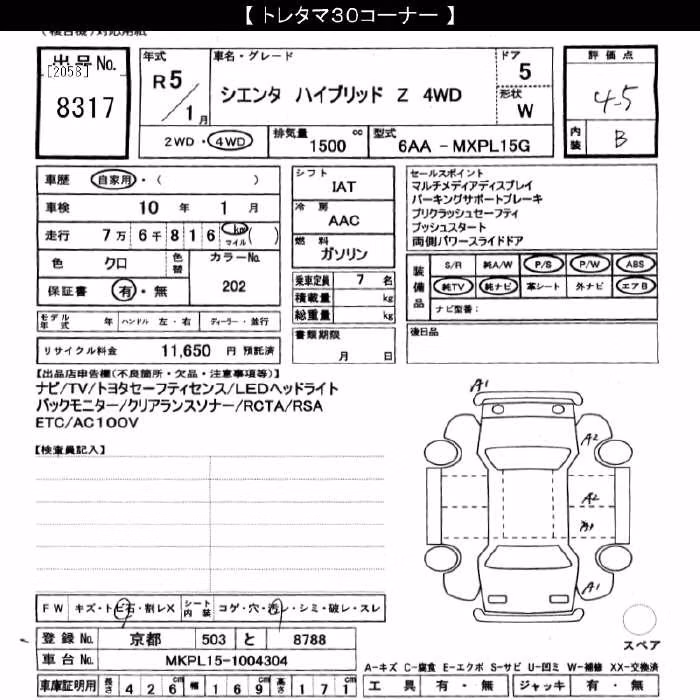 【 トレタマ30コーナー 】
(複合機)対応用紙
出品No.
[2058]
8317
年式
R5
1月
車名・グレード
シエンタ ハイブリッド Z 4WD
ドア
5
形状
W
2WD・4WD
排気量
1500 cc
型式
6AA-MXPL15G
評価点
4.5
内装
B
車歴 自家用・( )
車検 10年 1月
走行 7万 6千 816 km マイル ( )
色 クロ
色替
カラーNo.
202
保証書 有・無
モデル年式 年 ハンドル 左・右 ディーラー・並行
リサイクル料金 11,650 円 預託済
シフト
IAT
冷房
AAC
燃料
ガソリン
乗車定員 7 名
積載量 kg
総重量 kg
書類期限
月 日
セールスポイント
マルチメディアディスプレイ
パーキングサポートブレーキ
プリクラッシュセーフティ
プッシュスタート
両側パワースライドドア
装備品
S/R 純A/W P/S P/W ABS
純TV 純ナビ 革シート 外ナビ エアB
ナビ型番:
後日品
【出品店申告欄(不良箇所・欠品・注意事項等)】
ナビ/TV/トヨタセーフティセンス/LEDヘッドライト
バックモニター/クリアランスソナー/RCTA/RSA
ETC/AC100V
【検査員記入】
A1
A2
A2
A1
A1
スペア
FW キズ・トビ石・割レX シート内装 コゲ・穴・汚レ・シミ・破レ・スレ
登録No. 京都 503 と 8788
車台No. MKPL15-1004304
A-キズ C-腐食 E-エクボ S-サビ U-凹ミ W-補修 XX-交換済
車庫証明用 長さ 426cm 幅 169cm 高さ 171cm
工具 有・無 ジャッキ 有・無